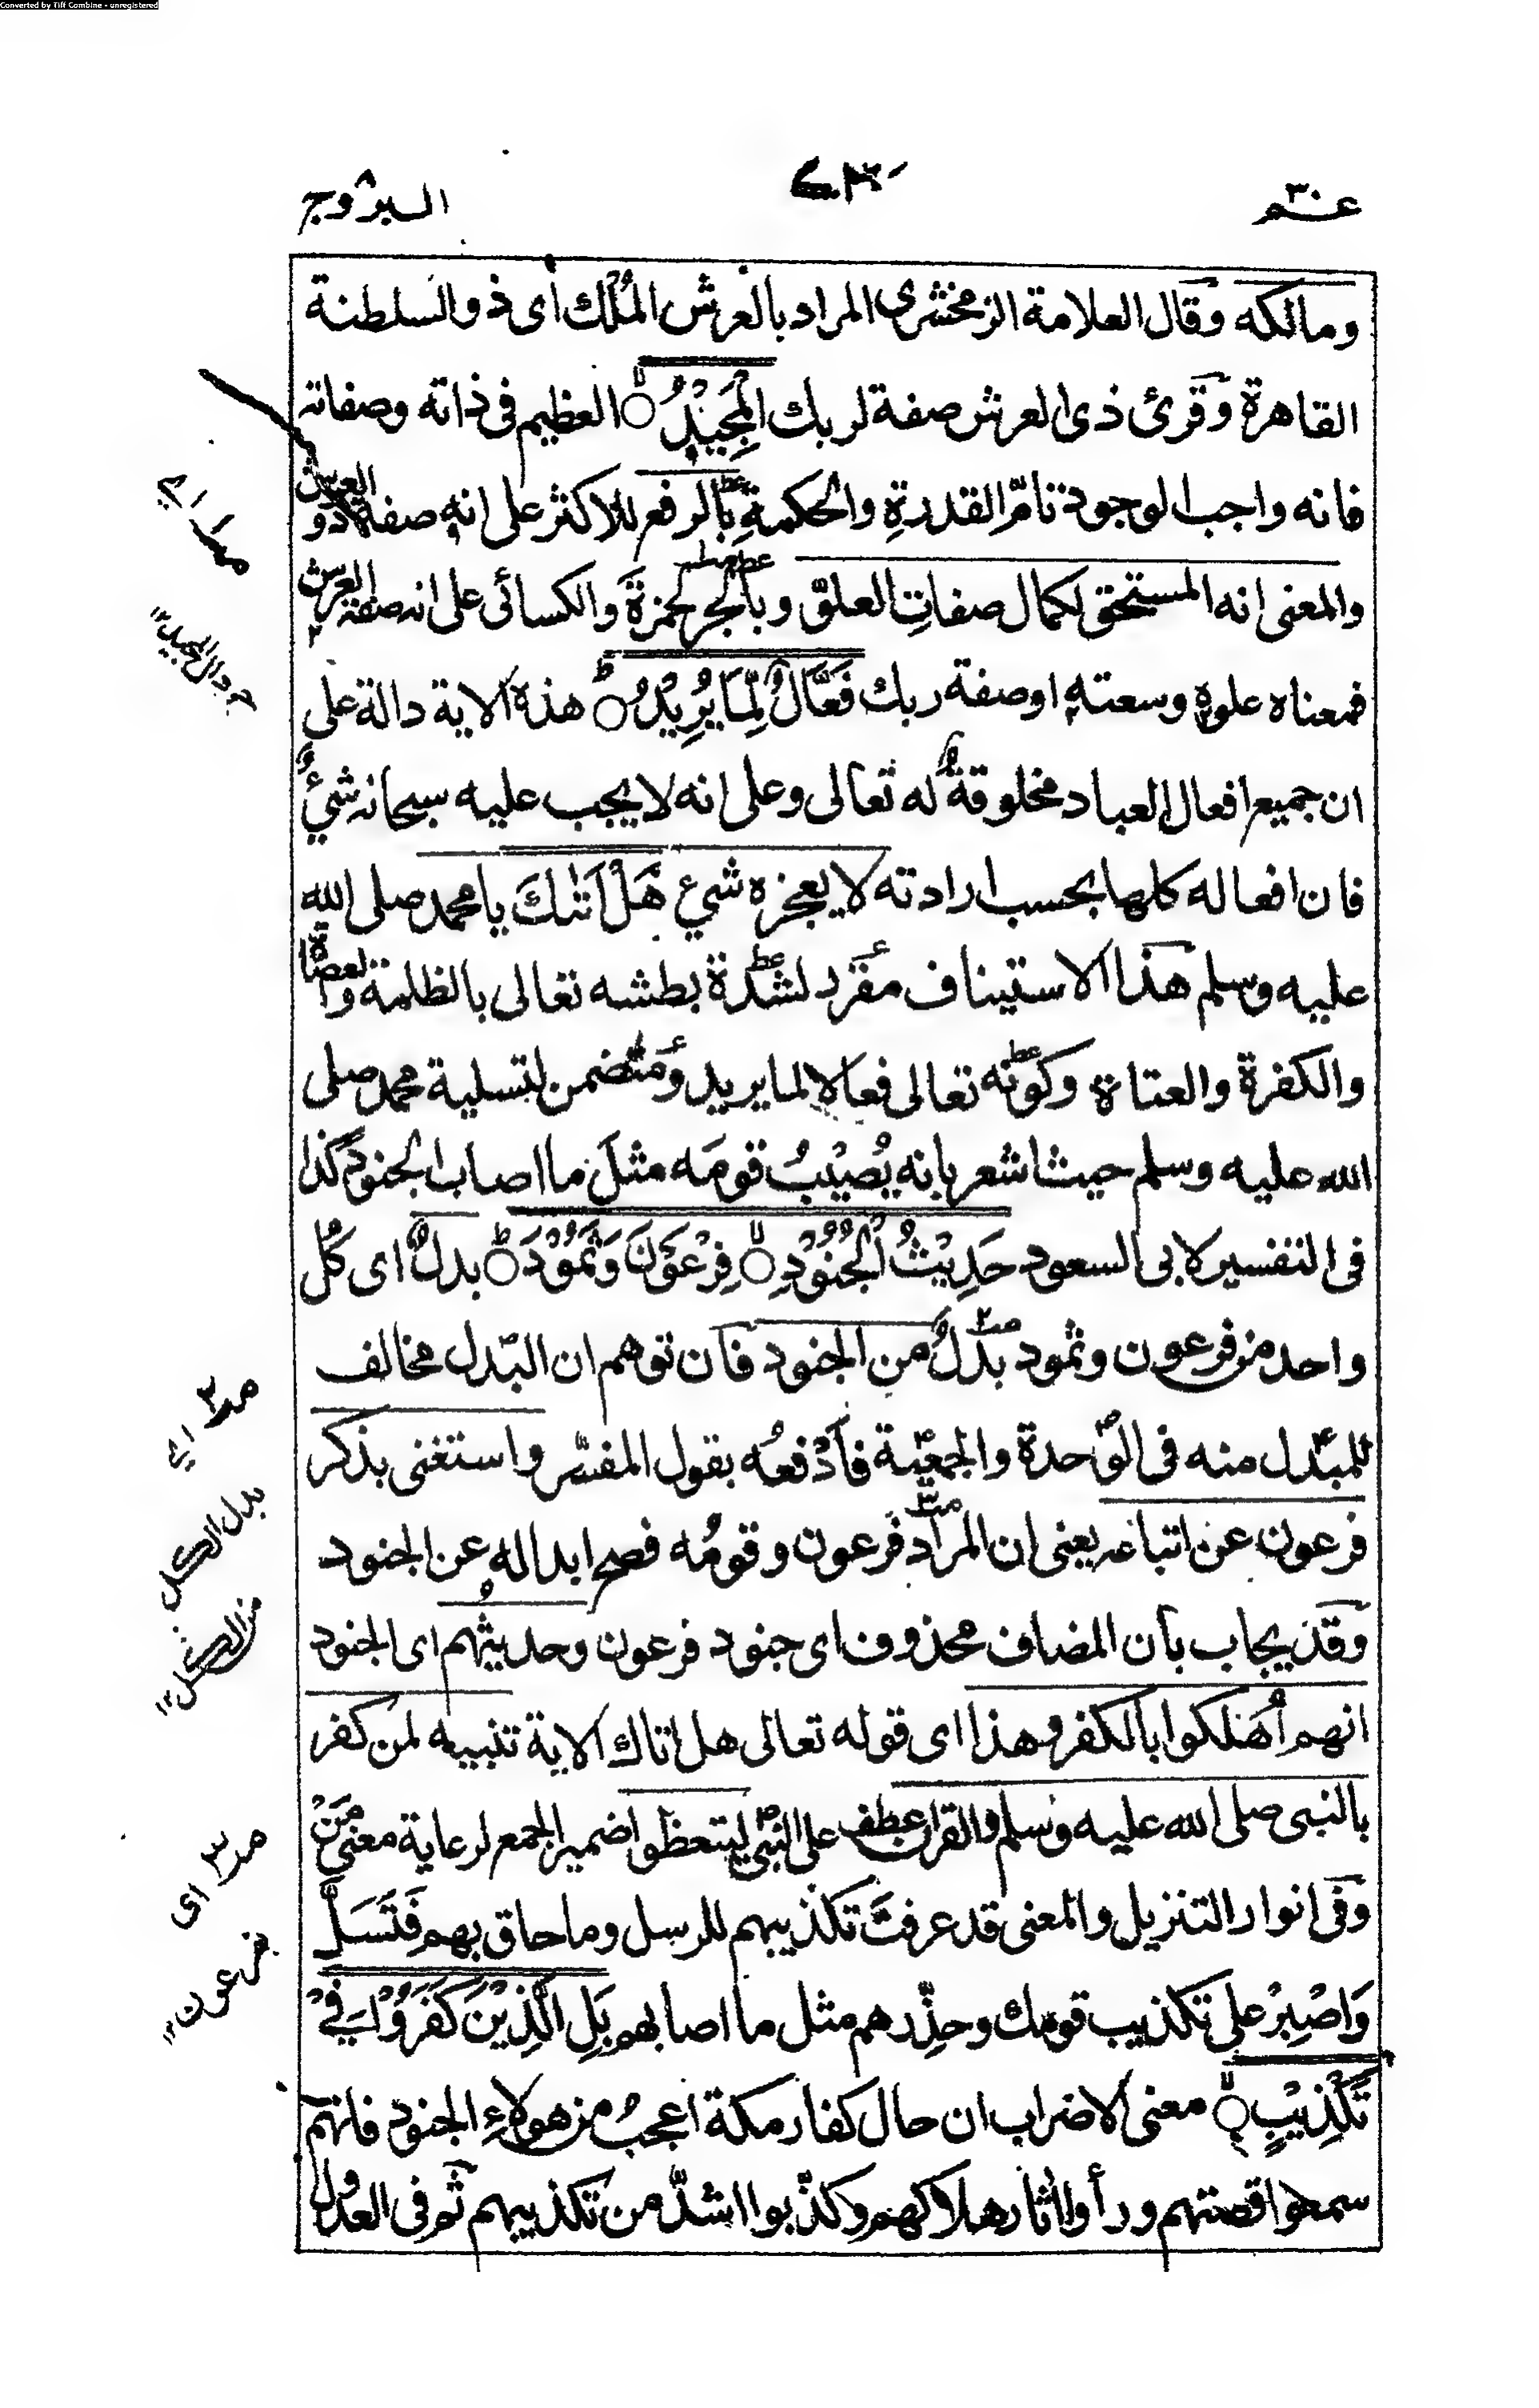 Converted by Tiff Combine - unregistered
عم ٣٠
البروج
ومالكه وقال العلامة الزمخشرى المراد بالعرش المُلك اى ذو السلطنة
القاهرة وقرئ ذى العرش صفة لربك الْمَجِيْدُ العظيم فى ذاته وصفاته
فانه واجب الوجود تامّ القدرةِ والحكمةِ بالرفع للاكثر على انه صفة ذو العرش
والمعنى انه المستحق لكمال صفاتِ العلوّ وبالجر لحمزةَ والكسائى على انه صفة العرش
فمعناه علوه وسعته اوصفة ربك فَعَّالٌ لِّمَا يُرِيْدُ هذه الاية دالة على
ان جميع افعال العباد مخلوقةٌ له تعالى وعلى انه لا يجب عليه سبحانه شيءٌ
فان افعاله كلها بحسب ارادته لا يعجزه شيء هَلْ اَتٰىكَ يا محمد صلى الله
عليه وسلم هذا الاستيناف مقرر لشدة بطشه تعالى بالظلمة والعصاة
والكفرة والعتاة وكونه تعالى فعالا لما يريد ومتضمن لتسلية محمد صلى
الله عليه وسلم حيث اشعر بانه يُصيْبُ قومَه مثلَ ما اصاب الجنود كذا
فى التفسير لابى السعود حَدِيْثُ الْجُنُوْدِ فِرْعَوْنَ وَثَمُوْدَ بدلٌ اى كُل
واحد من فرعون وثمود بدلٌ من الجنود فان توهم ان البدل مخالف
للمبدل منه فى الوحدة والجمعية فادْفعُه بقول المفسّر واستغنى بذكر
فرعون عن اتباعه يعنى ان المراد فرعون وقومُه فصح ابداله عن الجنود
وقد يجاب بان المضاف محذوف اى جنود فرعون وحديثُهم اى الجنود
انهم أُهلكوا بالكفر وهذا اى قوله تعالى هل اتاك الاية تنبيه لمن كفر
بالنبى صلى الله عليه وسلم والقران عطف على النبى ليتعظوا ضمير الجمع لرعاية معنى مَنْ
وفى انوار التنزيل والمعنى قد عرفتَ تكذيبهم للرسل وما حاق بهم فَتَسَلَّ
وَاصْبِرْ على تكذيب قومك وحذّرهم مثل ما اصابهم بَلِ الَّذِيْنَ كَفَرُوْا فِيْ
تَكْذِيْبٍ معنى الاضراب ان حال كفار مكة اعجبُ من هولاءِ الجنود فانهم
سمعوا قصتهم ورأوا اٰثار هلاكهم وكذّبوا اشدّ من تكذيبهم ثم فى العدول
اى
دال المجيد
اى
بدل الكل
من الكل
اى
بفرعون